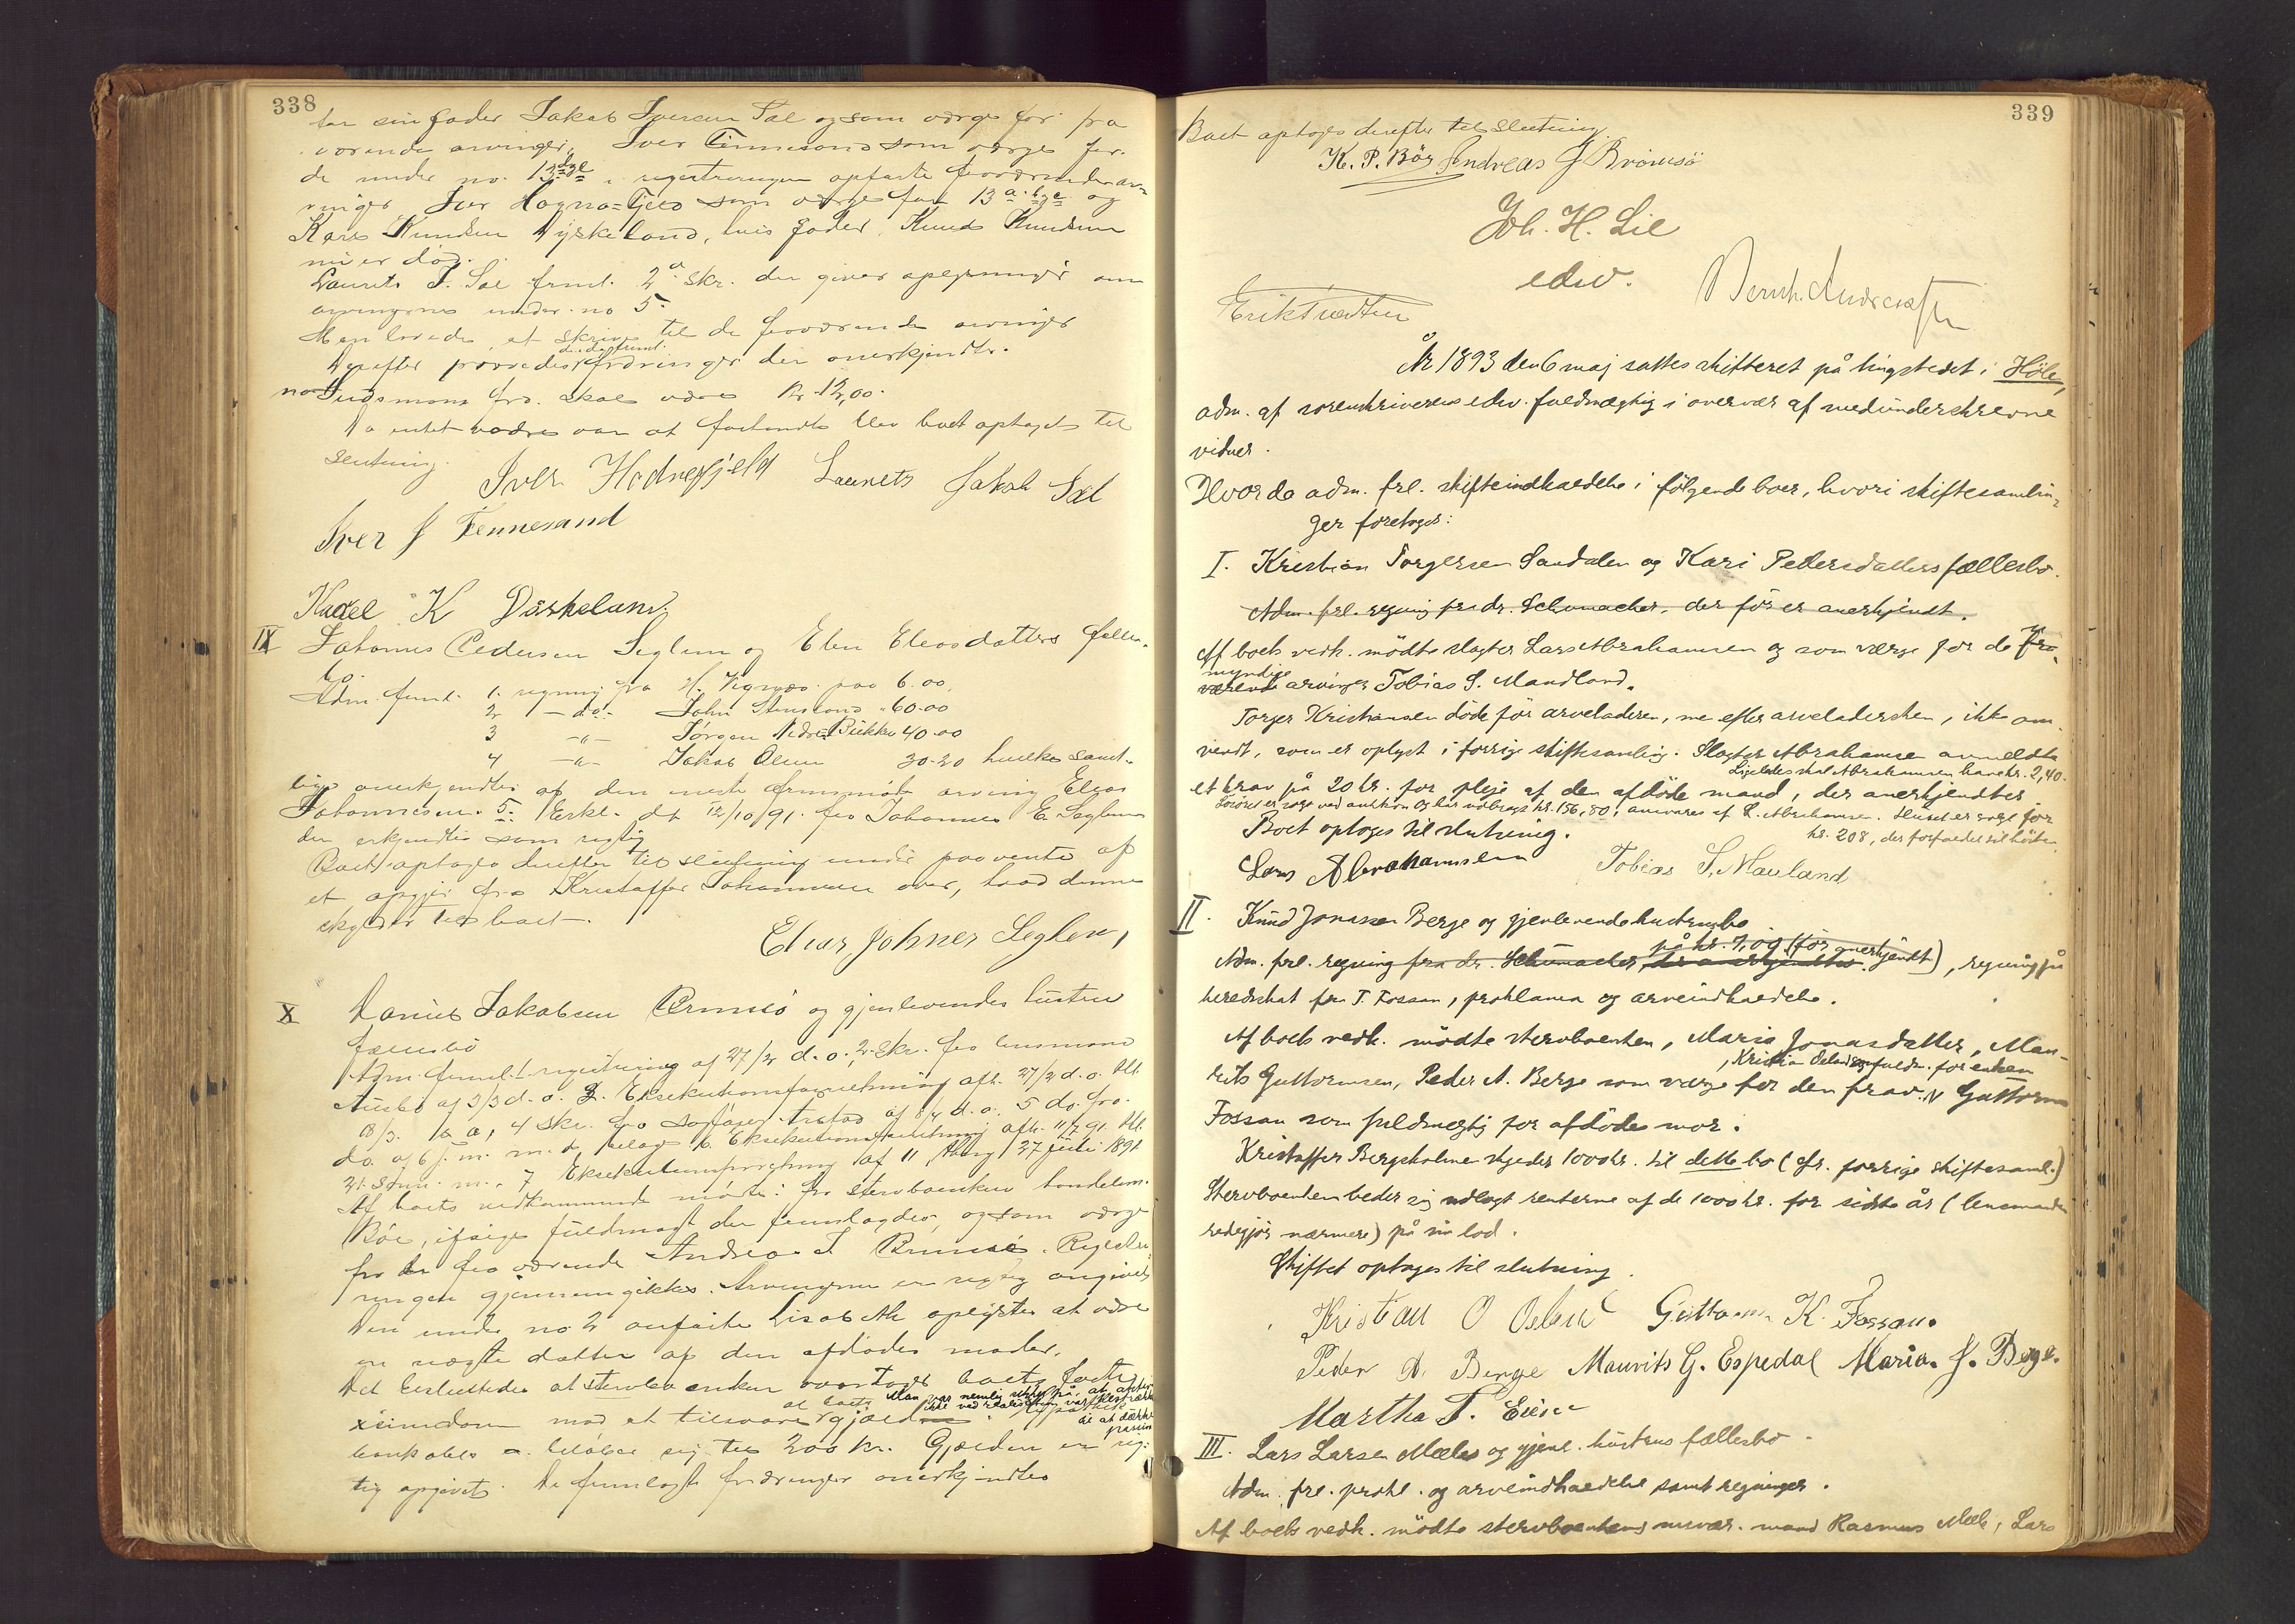 338
for sin fader Jakob Iversen Sæl og som værge for fra
værende arvinger, Iver Tennesand som værge for
de under no. 13 d g e i registreringen opførte fraværende ar-
vinger Iver Hogna-Fjeld som værge for 13 a. b g c og
Karl Knudsen Dyskeland, hvis fader Knud Knudsen
nu er død.
Laurits J. Sæl freml. 2 skr. der giver oplysninger om
arvingerne under no 5.
Man lovede at skrive til de fraværende arvinger
Derefter prøvedes de freml. fordringer der anerkjendtes.
no Tudsmans frd. skal være kr. 12,00.
Da intet videre var at foretindte blev boet optaget til
slutning.
Iver Hodnefjeld Laurits Jakob Sæl
Iver J Tennesand
Karel K Dÿskeland.
IX Johannes Pedersen Seglem og Elen Eleasdatters fælles-
bo.
Adm. freml. 1. regning fra H. Vignæs paa 6.00,
2 - do - John Stensland " 60.00
3 -"- Jørgen Nedre-Bükken 40.00
4 -"- Jakob Olsen 30.20 hvilke samt-
lige anerkjendtes af den eneste fremmødte arving Elias
Johannesen. 5. Erkl. dt. 12/10/91. fra Johannes E. Seglem
der erkjendtes som rigtig
Boet optages derefter til slutning under paavente af
et opgjør fra Kristoffer Johannesen over, hvad denne
skylder til boet.
Elias Johnes Seglem,
X Daniel Jakobsen Brimsø og gjenlevendes hustru
fællesbo
Adm. freml. 1 registrering af 27/2 d. a., 2. skr. fra lensmand
Ausbø af 3/3 d. a. 3. Eksekutionsforretning afh. 27/2 d. a. tkl.
13/3. s. a., 4 skr. fra sagfører Arstad af 8/4 d. a. 5 do. fra
do. af 6 f. m. m. 1 bilag 6. Eksekutionsforretning afh. 11/7 91. tkl.
21. s. m. 7 Eksekutionsforretning af 11 thing 27 juli 1891
Af boets vedkommende mødte: for sterboenken handelsm.
Bøe, ifølge fuldmagt der fremlagdes, og som værge
for de fraværende Andreas J Brimsø. Registre-
ringen gjennemgikkes. Arvingerne er rigtig angivet
Den under no 2 anførte Lisabeth oplystes at være
en uægte datter af den afdødes moder.
Det besluttedes at sterboenken overtager boets faste
eiendom mod at tilsvare al boets gjæld. Man var nemlig enig på, at aktiva
ikke ved realisation vilde strække
til at dække
passiva
boskabet beløber sig til 200 kr. Gjælden er rig-
tig opgivet. De fremlagte fordringer anerkjendtes
339
Boet optages derefter til slutning.
K. P. Böe Andreas J Brömsö
Joh. H. Lie
edsv.
Bernh. Andersen
Erik Tvedten
År 1893 den 6 maj sattes skifteret på tingstedet i Höle,
adm. af sorenskriverens edsv. fuldmægtig i overvær af medunderskrevne
vidner.
Hvorda adm. frl. skifteindkaldelse i følgende boer, hvori skiftesamlin-
ger foretoges:
I. Kristian Torgersen Sandalen og Kari Pedersdatters fællesbo.
Adm. frl. regning fra dr. Schumacher, der för er anerkjendt.
Af boets vedk. mödte slagter Lars Abrahamsen og som værge for de fra-
værende umyndige arvinger Tobias S. Maudland.
Torger Kristiansen döde för arveladeren, men efter arveladersken, ikke om-
vendt, som er oplyst i forrige skiftesamling. Slagter Abrahamsen anmeldte
Ligeledes skal Abrahamsen have kr. 2,40.
et krav på 20 kr. for pleje af den afdöde mand, der anerkjendtes
Lösöret er solgt ved auktion og har indbragt kr. 156,80, ansvares af L. Abrahamsen. Huset er solgt for
kr. 208, der forfalder til hösten.
Boet optoges til slutning.
Lars Abrahamsen Tobias S. Mauland
II. Knud Jonassen Berge og gjenlevende hustrusbo
Adm. frl. regning fra dr. Schumacher, der anerkjendtes på kr. 7,00 (för anerkjendt), regning på
heredskat fra T. Fossan, proklama og arveindkaldelse.
Af boets vedk. mödte stervboenken, Maria Jonasdatter, Mau-
rits Guttormsen, Peder A. Berge som værge for den frav., Kristian Osland som fuldm. for enken Guttorm
Fossan som fuldmægtig for afdödes mor.
Kristoffer Bergsholmen skylder 1000 kr. til dette bo (cfr. forrige skiftesaml.)
Stervboenken beder sig udlagt renterne af de 1000 kr. for sidste år (lensmanden
redegjör nærmere) på sin lod.
Skiftet optoges til slutning.
Kristian O Osland Guttorm K. Fossan.
Peder A. Berge Maurits G. Espedal Maria. J. Berge.
Martha T. Eiane
III. Lars Larsen Mæle og gjenl. hustrus fællesbo.
Adm. frl. prokl. og arveindkaldelse samt regninger.
Af boets vedk. mödte stervboenkens nuvær. mand Rasmus Mæle, Lars